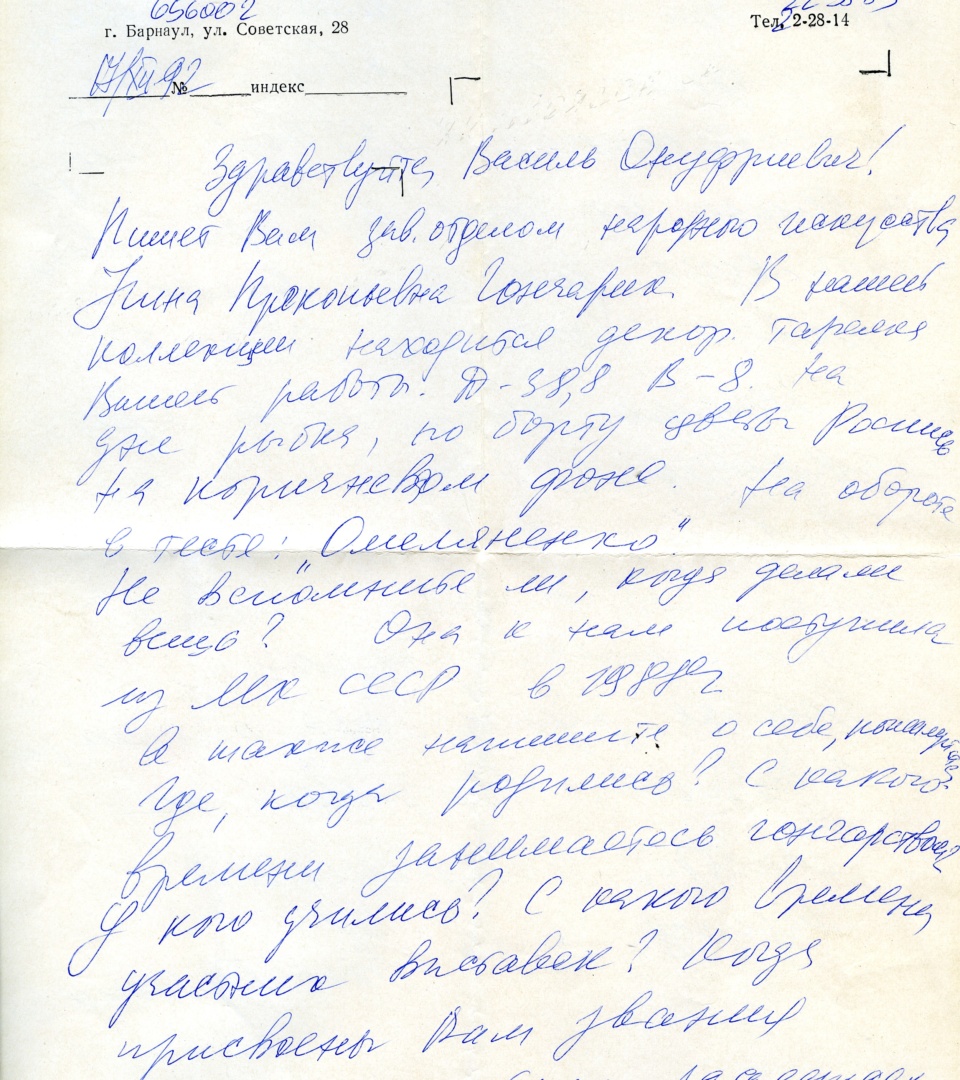 656002
г. Барнаул, ул. Советская, 28
Тел. 2-28-14
17/XII-92 № индекс
Здравствуйте, Василь Онуфриевич!
Пишет Вам зав. отделом народного искусства
Нина Прокопьевна Гончарик. В нашей
коллекции находится декор. тарелка
Вашей работы. Д-38,8 В-8. На
дне рыбка, по борту цветы Роспись
на коричневом фоне. На обороте
в тесте: "Омеляненко"
Не вспомните ли, когда делали
вещь? Она к нам поступила
из МК СССР в 1989г
А также напишите о себе, пожалуйста
Где, когда родились? С какого
времени занимаетесь гончарством?
У кого учились? С какого времени
участник выставок? Когда
присвоены Вам звания